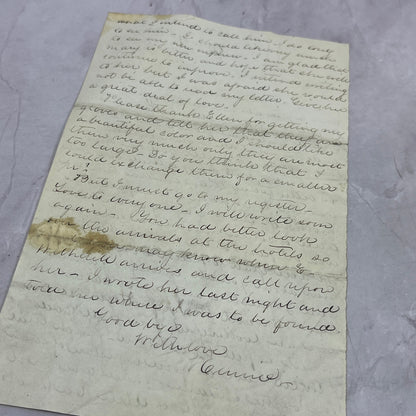 what I intend to call him. I do long
to see him. I would like very much
to see
Mary is better and hope that she will
continue to improve. I intend writing
to her but I was afraid she would
not be able to read my letter. Give her
a great deal of love.
Please thank Ellen for getting my
gloves and tell her that they are
a beautiful color and I should like
them very much only they are most
too large. Do you think that I
could exchange them for a smaller
But I must go to my register.
Love to everyone. I will write soon
again. You had better look
over the arrivals at the hotels so
you may know when
arrives and call upon
her. I wrote her last night and
told her where I was to be found.
Good bye
With love